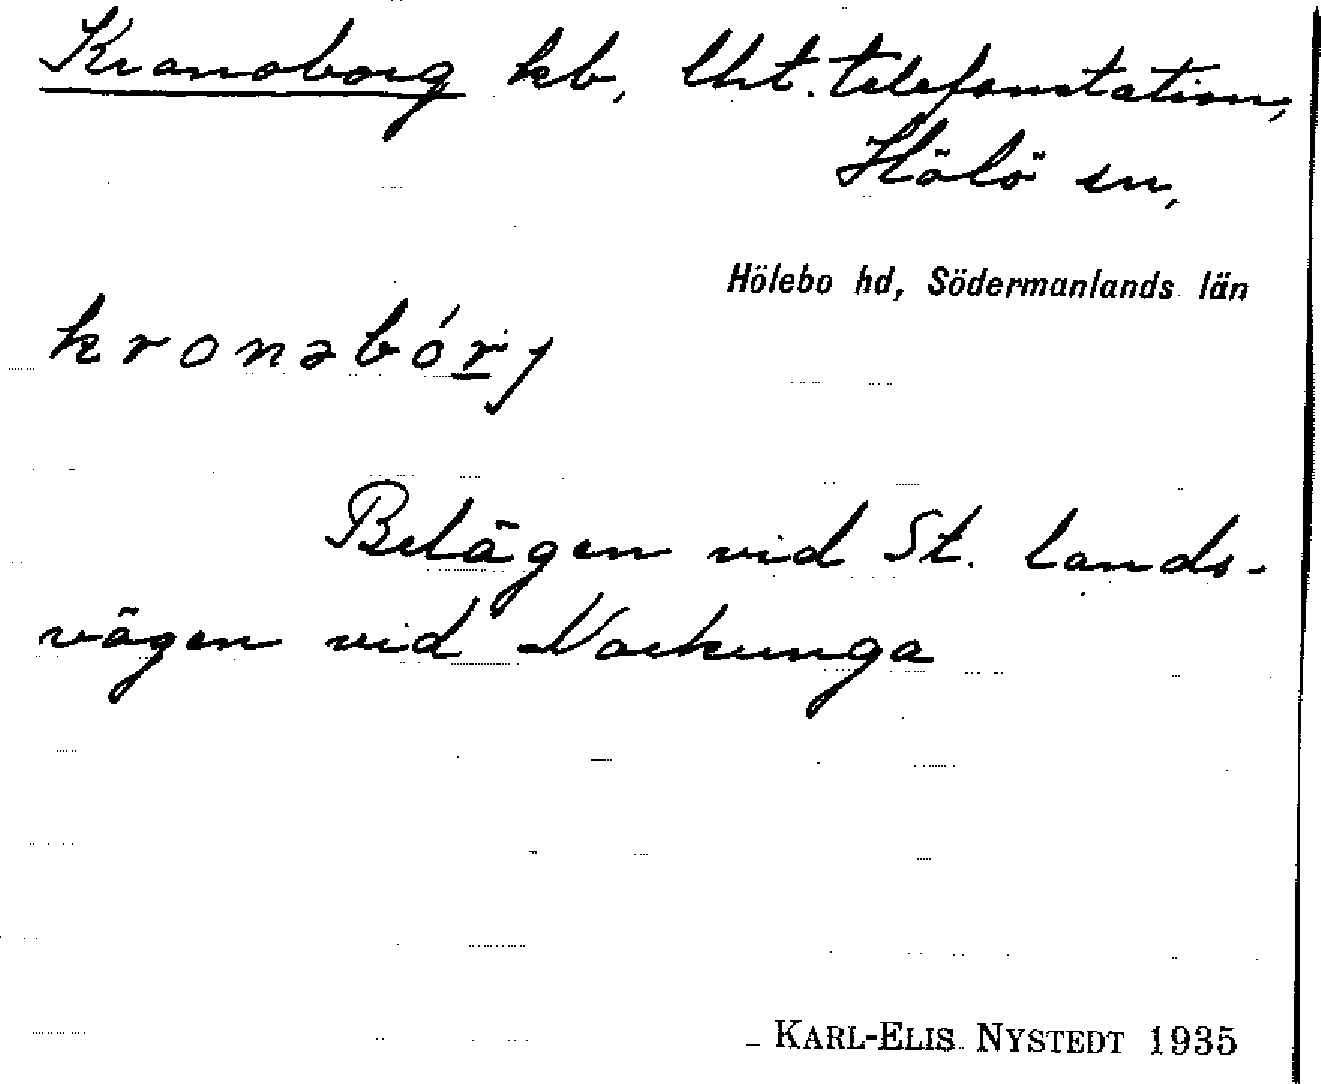 Kronoborg hb, lht. telefonstation,
Hölö sn,
Hölebo hd, Södermanlands län
kronəbór̲j
Belägen vid St. lands-
vägen vid Norkunga
KARL-ELIS NYSTEDT 1935